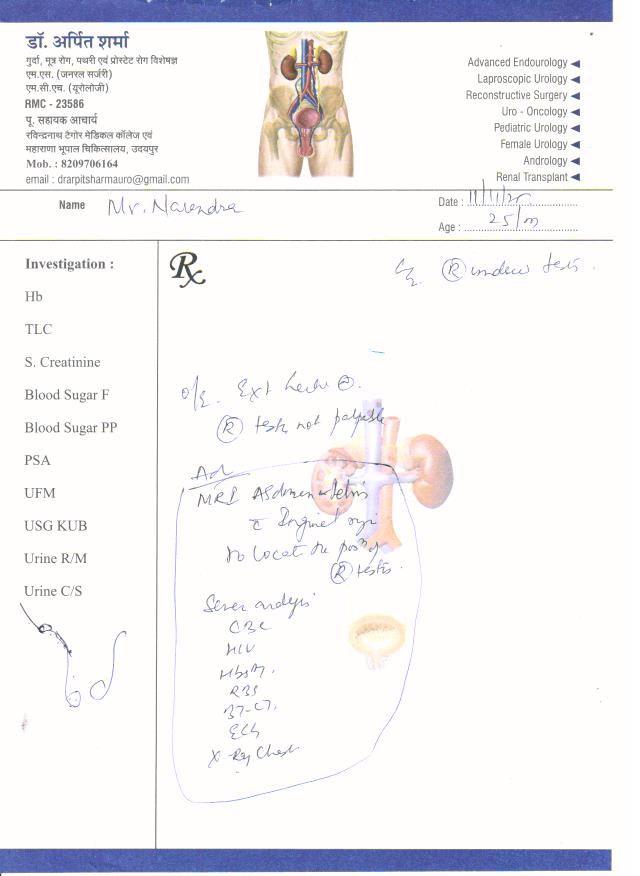 डॉ. अर्पित शर्मा
गुर्दा, मूत्र रोग, पथरी एवं प्रोस्टेट रोग विशेषज्ञ
एम.एस. (जनरल सर्जरी)
एम.सी.एच. (यूरोलोजी)
RMC - 23586
पू. सहायक आचार्य
रविन्द्रनाथ टैगोर मेडिकल कॉलेज एवं
महाराणा भूपाल चिकित्सालय, उदयपुर
Mob. : 8209706164
email : drarpitsharmauro@gmail.com
Advanced Endourology
Laproscopic Urology
Reconstructive Surgery
Uro - Oncology
Pediatric Urology
Female Urology
Andrology
Renal Transplant
Name Mr. Narendra
Date : 11/11/25
Age : 25/m
Investigation :
Hb
TLC
S. Creatinine
Blood Sugar F
Blood Sugar PP
PSA
UFM
USG KUB
Urine R/M
Urine C/S
Rx
R testis
O/E. Ext
R testis not palpable
Ad
MRI Abdomen Pelvis
c Inguinal
to locate the posn of
R testis.
Semen analysis
CBC
HIV
HbsAg.
RBS
BT-CT.
ECG
X-Ray Chest